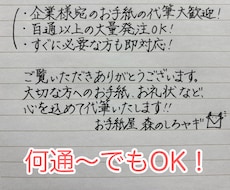 ・企業様宛のお手紙の代筆大歓迎！
・百通以上の大量発注OK！
・すぐに必要な方も即対応！
ご覧いただきありがとうございます。
大切な方へのお手紙、お礼状など、
心を込めて代筆いたします!!
お手紙屋 森のしろヤギ
何通～でもOK！